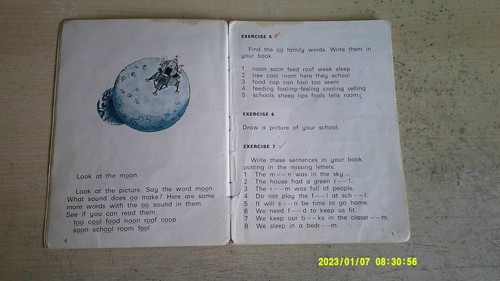 Look at the moon.
Look at the picture. Say the word moon.
What sound does oo make? Here are some
more words with the oo sound in them.
See if you can read them:
too cool food noon roof coop
soon school room fool
EXERCISE 5
Find the oo family words. Write them in
your book.
1 noon soon feed roof week sleep
2 tree cool room here they school
3 food cap can fool too seem
4 feeding fooling feeling cooling selling
5 schools sheep lips fools tells room
EXERCISE 6
Draw a picture of your school.
EXERCISE 7
Write these sentences in your book
putting in the missing letters.
1 The m--n was in the sky.
2 The house had a green r--f.
3 The r--m was full of people.
4 Do not play the f--l at sch--l.
5 It will s--n be time to go home.
6 We need f--d to keep us fit.
7 We keep our b--ks in the classr--m.
8 We sleep in a bedr--m.
2023/01/07 08:30:56